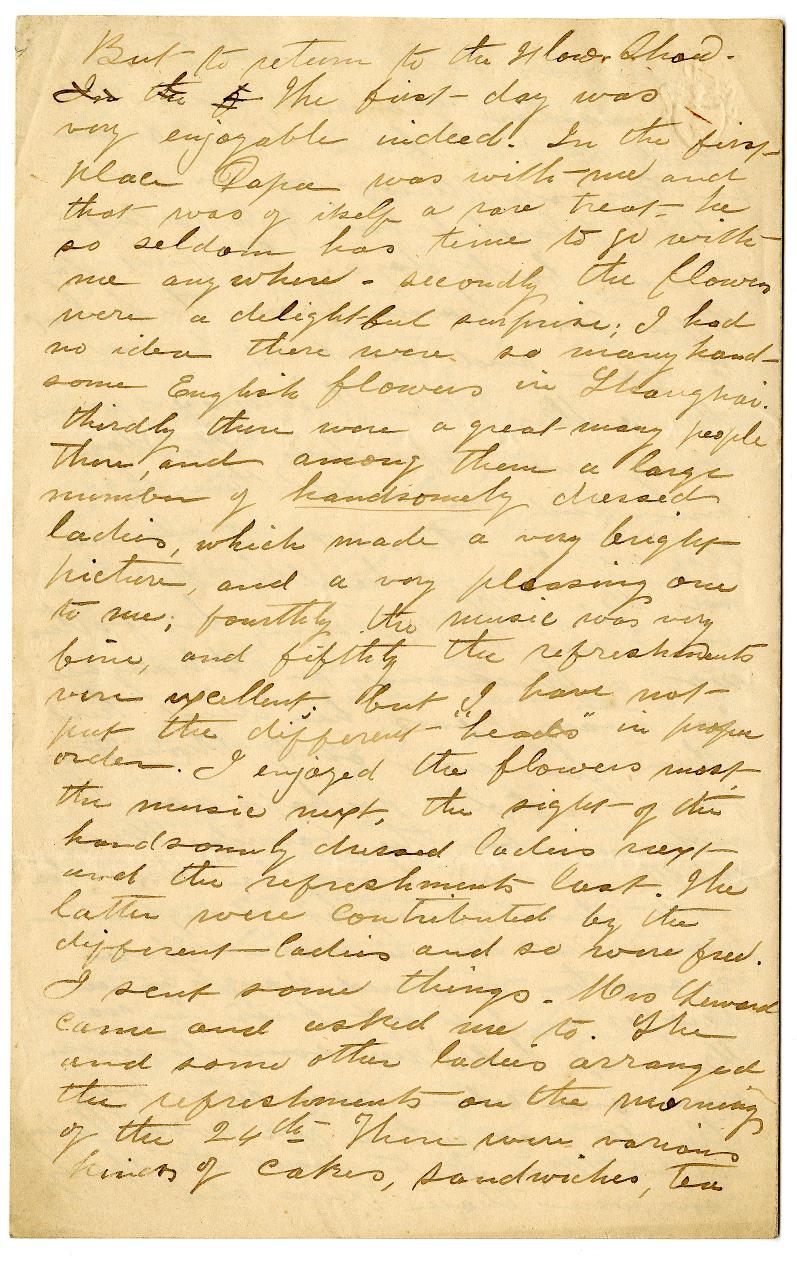 But to return to the Flower Show.
In the f The first day was
very enjoyable indeed. In the first
place Papa was with me and
that was of itself a rare treat - he
so seldom has time to go with
me anywhere - secondly the flowers
were a delightful surprise; I had
no idea there were so many hand-
some English flowers in Shanghai.
thirdly there were a great many people
there, and among them a large
number of handsomely dressed
ladies, which made a very bright
picture, and a very pleasing one
to me; fourthly the music was very
fine, and fifthly the refreshments
were excellent. but I have not
put the different "heads" in proper
order. I enjoyed the flowers most,
the music next, the sight of the
handsomely dressed ladies next
and the refreshments last. The
latter were contributed by the
different ladies and so were free.
I sent some things - Mrs Seward
came and asked me to. She
and some other ladies arranged
the refreshments on the morning
of the 24th There were various
kinds of cakes, sandwiches, tea